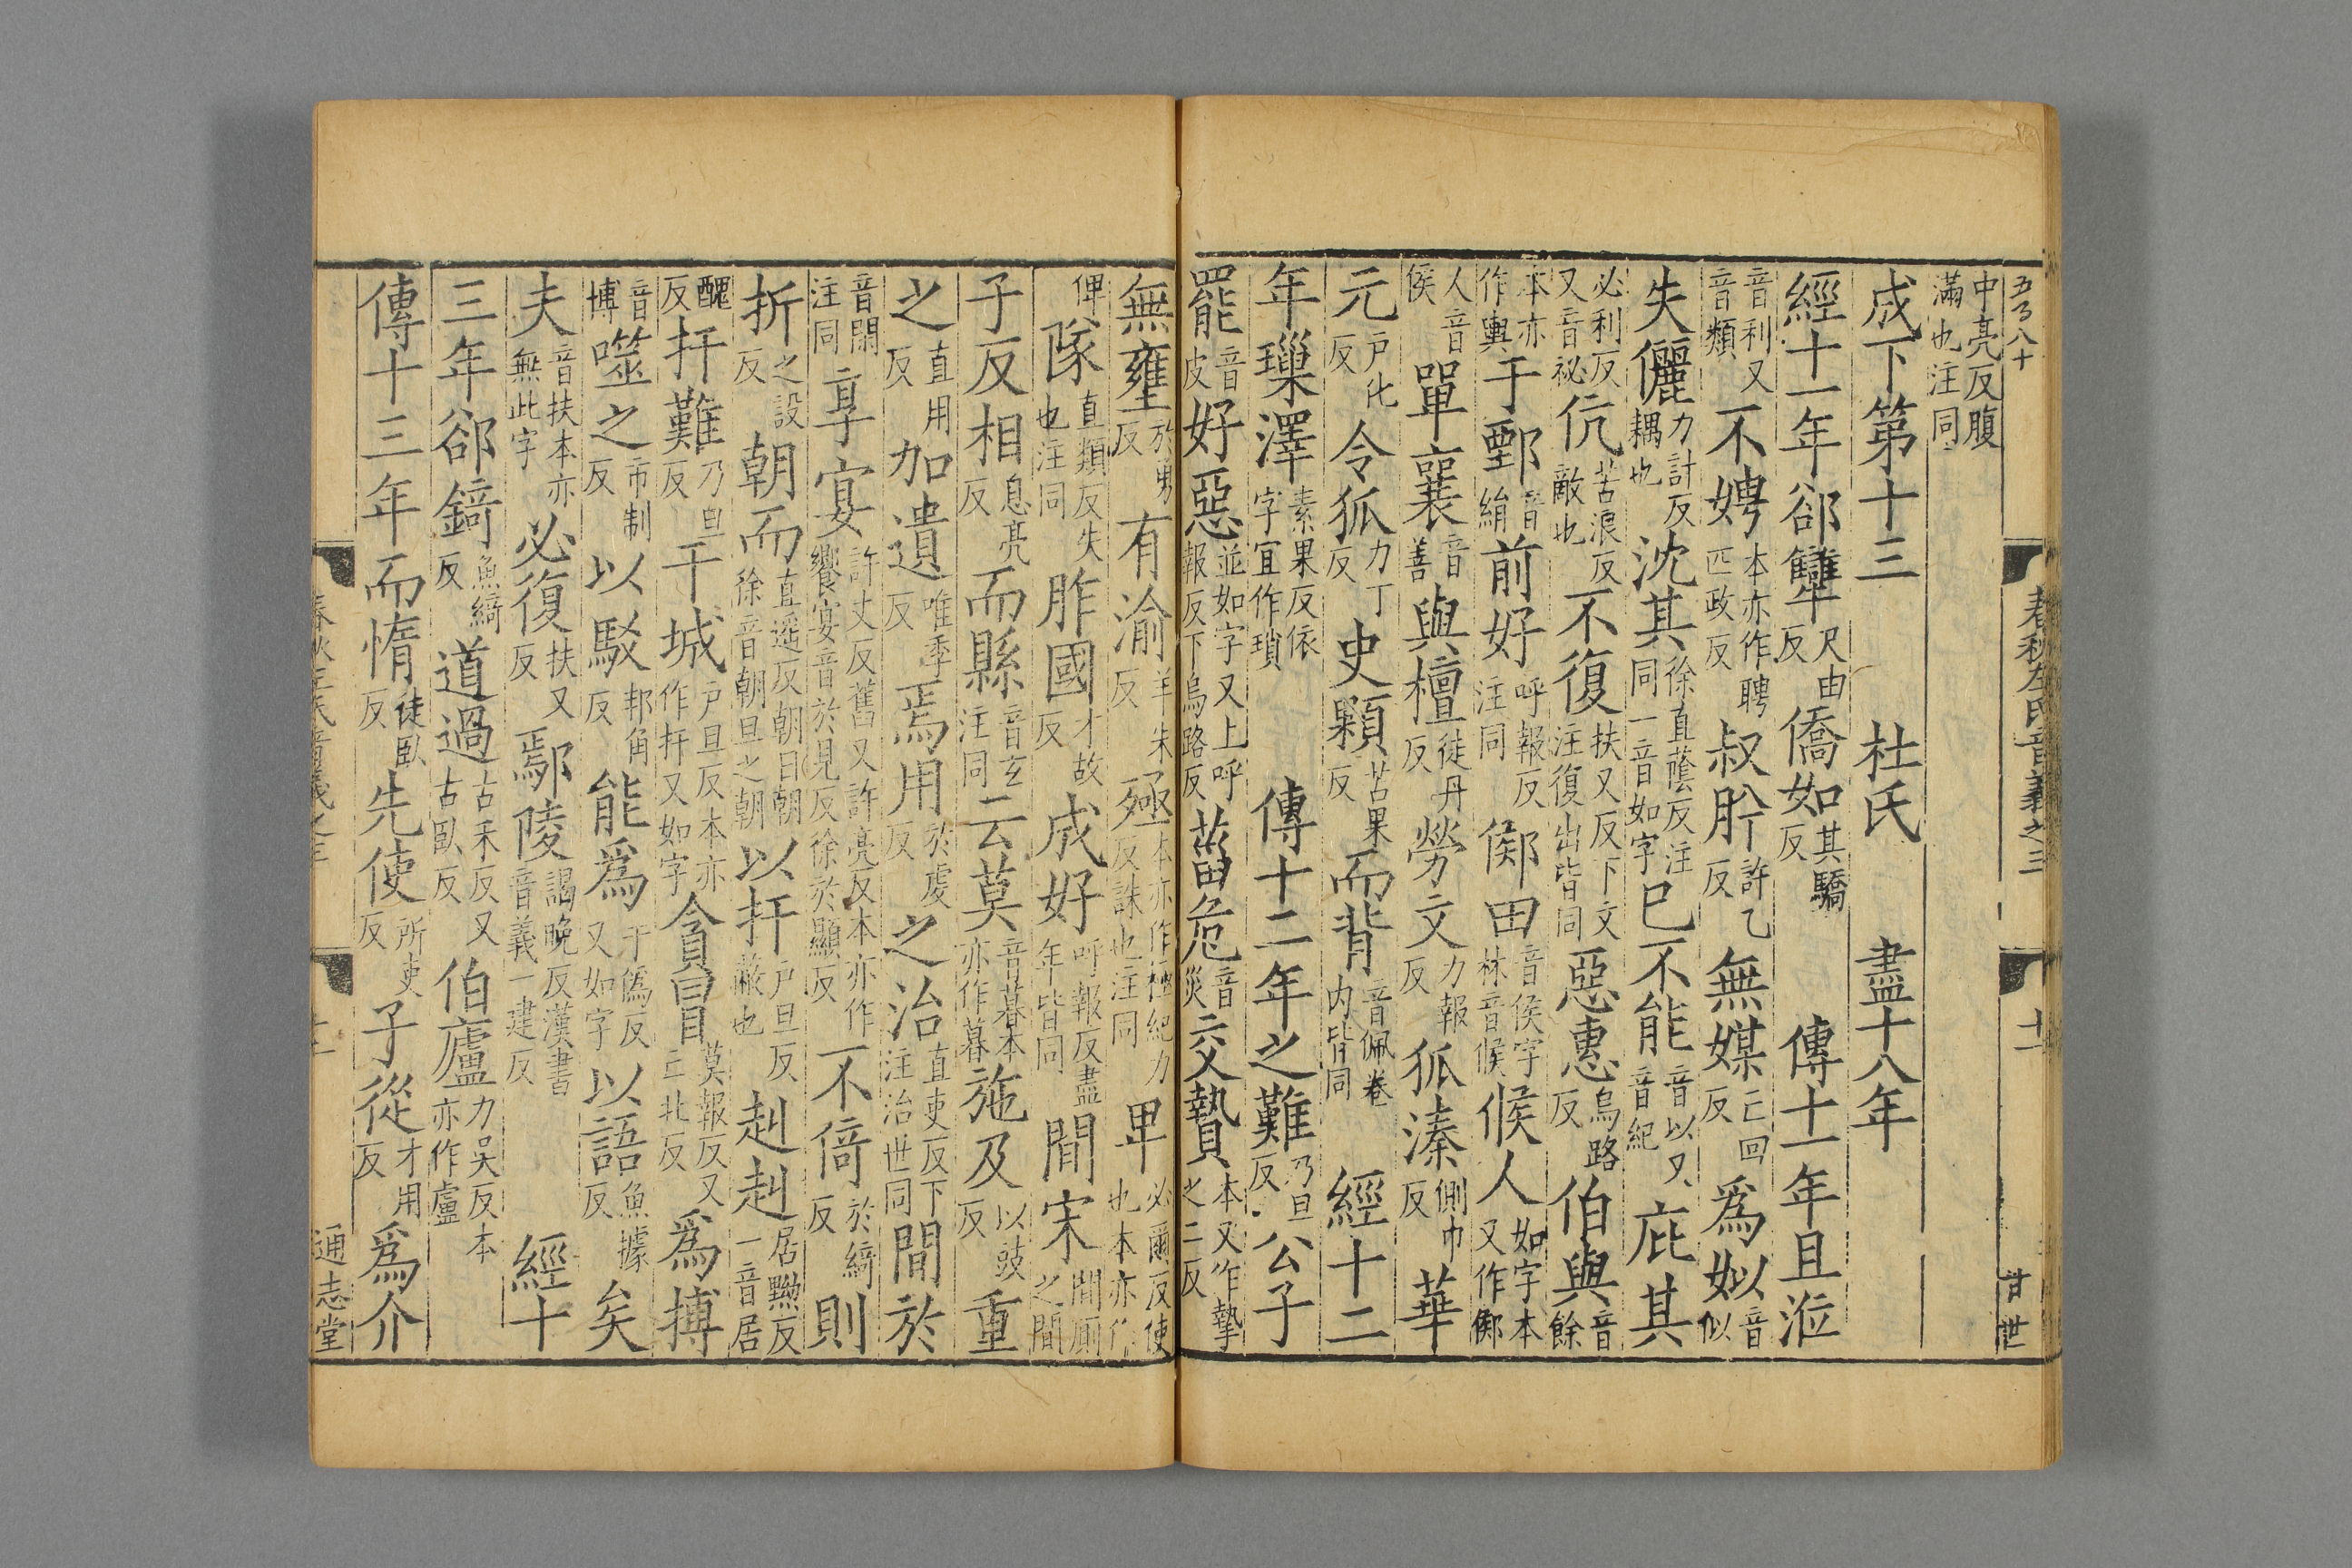 五丂八十
春秋左氏音義之三
十一
甘世
中亮反腹滿也注同
成下第十三 杜氏 盡十八年
經十一年郤犫尺由反僑如其驕反 傳十一年且涖
音利又音類不娉本亦作聘匹政反叔肸許乙反無媒亡回反爲姒音似
失儷力計反耦也沈其徐直蔭反注同一音如字巳不能音以又音紀庇其
必利反又音祕伉苦浪反敵也不復扶又反下文注復出皆同惡惠烏路反伯與音餘
本亦作輿于鄄音絹前好呼報反注同鄇田音侯字林音候候人如字本又作鄇
人音侯單襄音善與檀徒丹反勞文力報反狐溱側巾反華
元戸化反令狐力丁反史顆苦果反而背音佩卷内皆同 經十二
年瑣澤素果反依字宜作瑣 傳十二年之難乃旦反公子
罷音皮好惡並如字又上呼報反下烏路反菑危音災交贄本又作摯之二反
無壅於勇反有渝羊朱反殛本亦作極紀力反誅也注同卑必爾反使也本亦作
俾隊直類反失也注同胙國才故反成好呼報反盡年皆同間宋間厠之間
子反相息亮反而縣音玄注同云莫音暮本亦作暮施及以豉反重
之直用反加遺唯季反焉用於虔反之治直吏反下注治世同間於
音閑注同享宴許丈反舊又許亮反本亦作饗宴音於見反徐於顯反不倚於綺反則
折之設反朝而直遥反朝日朝徐音朝旦之朝以扞戸旦反蔽也赳赳居黝反一音居
醜反扞難乃旦反干城戸旦反本亦作扞又如字貪冒莫報反又亡北反爲搏
音博噬之市制反以駮邦角反能爲于僞反又如字以語魚據反矣
夫音扶本亦無此字必復扶又反鄢陵謁晩反漢書音義一建反 經十
三年郤錡魚綺反道過古禾反又古臥反伯廬力吴反本亦作盧
傳十三年而惰徒臥反先使所吏反子從才用反爲介
春秋左氏音義之三
十一
通志堂